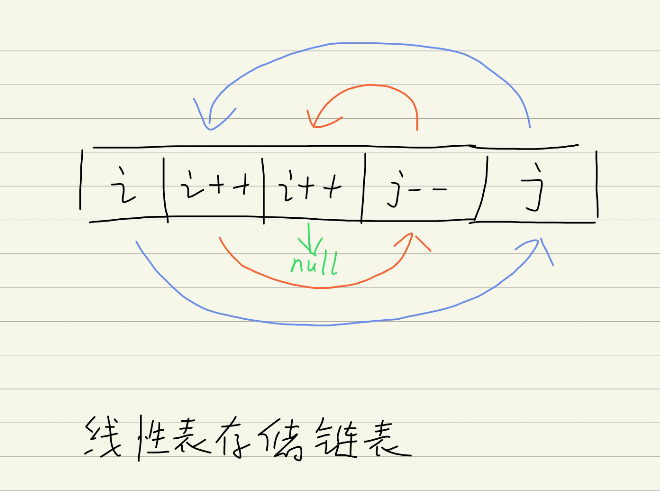 i i++ i++ j-- j
null
线性表存储链表